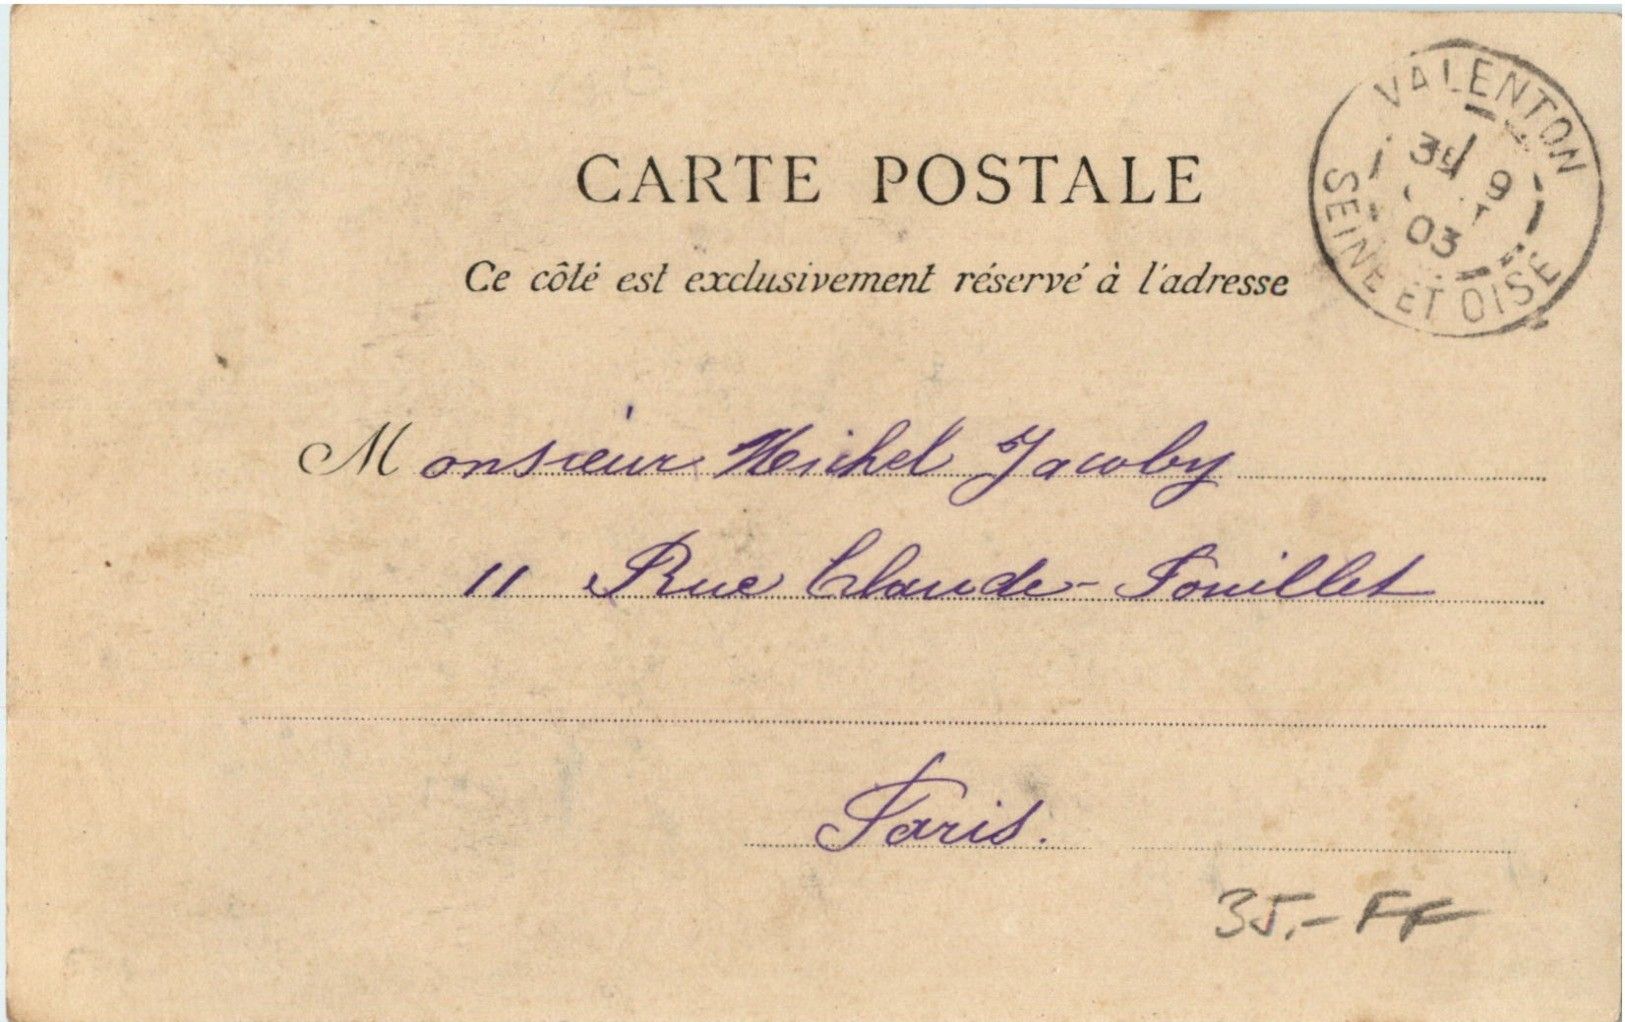 VALENTON
9
03
SEINE ET OISE
CARTE POSTALE
Ce côté est exclusivement réservé à l'adresse
Monsieur Michel Jacoby
11 Rue Claude-Pouillet
Paris.
35.- FF